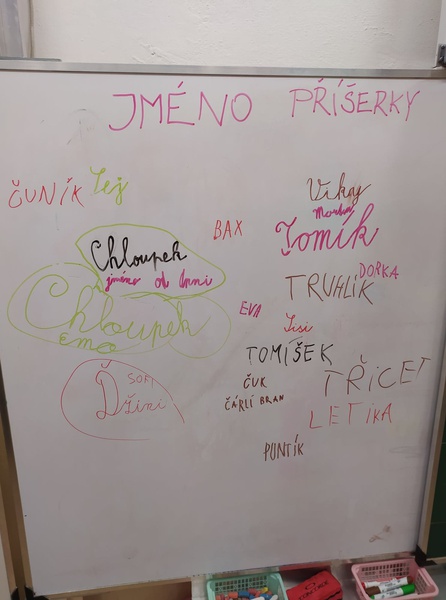 JMÉNO PŘÍŠERKY
ČUNÍK
Viky
Tomík
BAX
Chloupek
jméno od Anni
DORKA
TRUHLÍK
Chloupek
EMA
EVA
Sisi
TOMÍŠEK
TŘICET
SOFI
Džini
ČUK
ČÁRLÍ BRAN
LETIKA
PUNTÍK